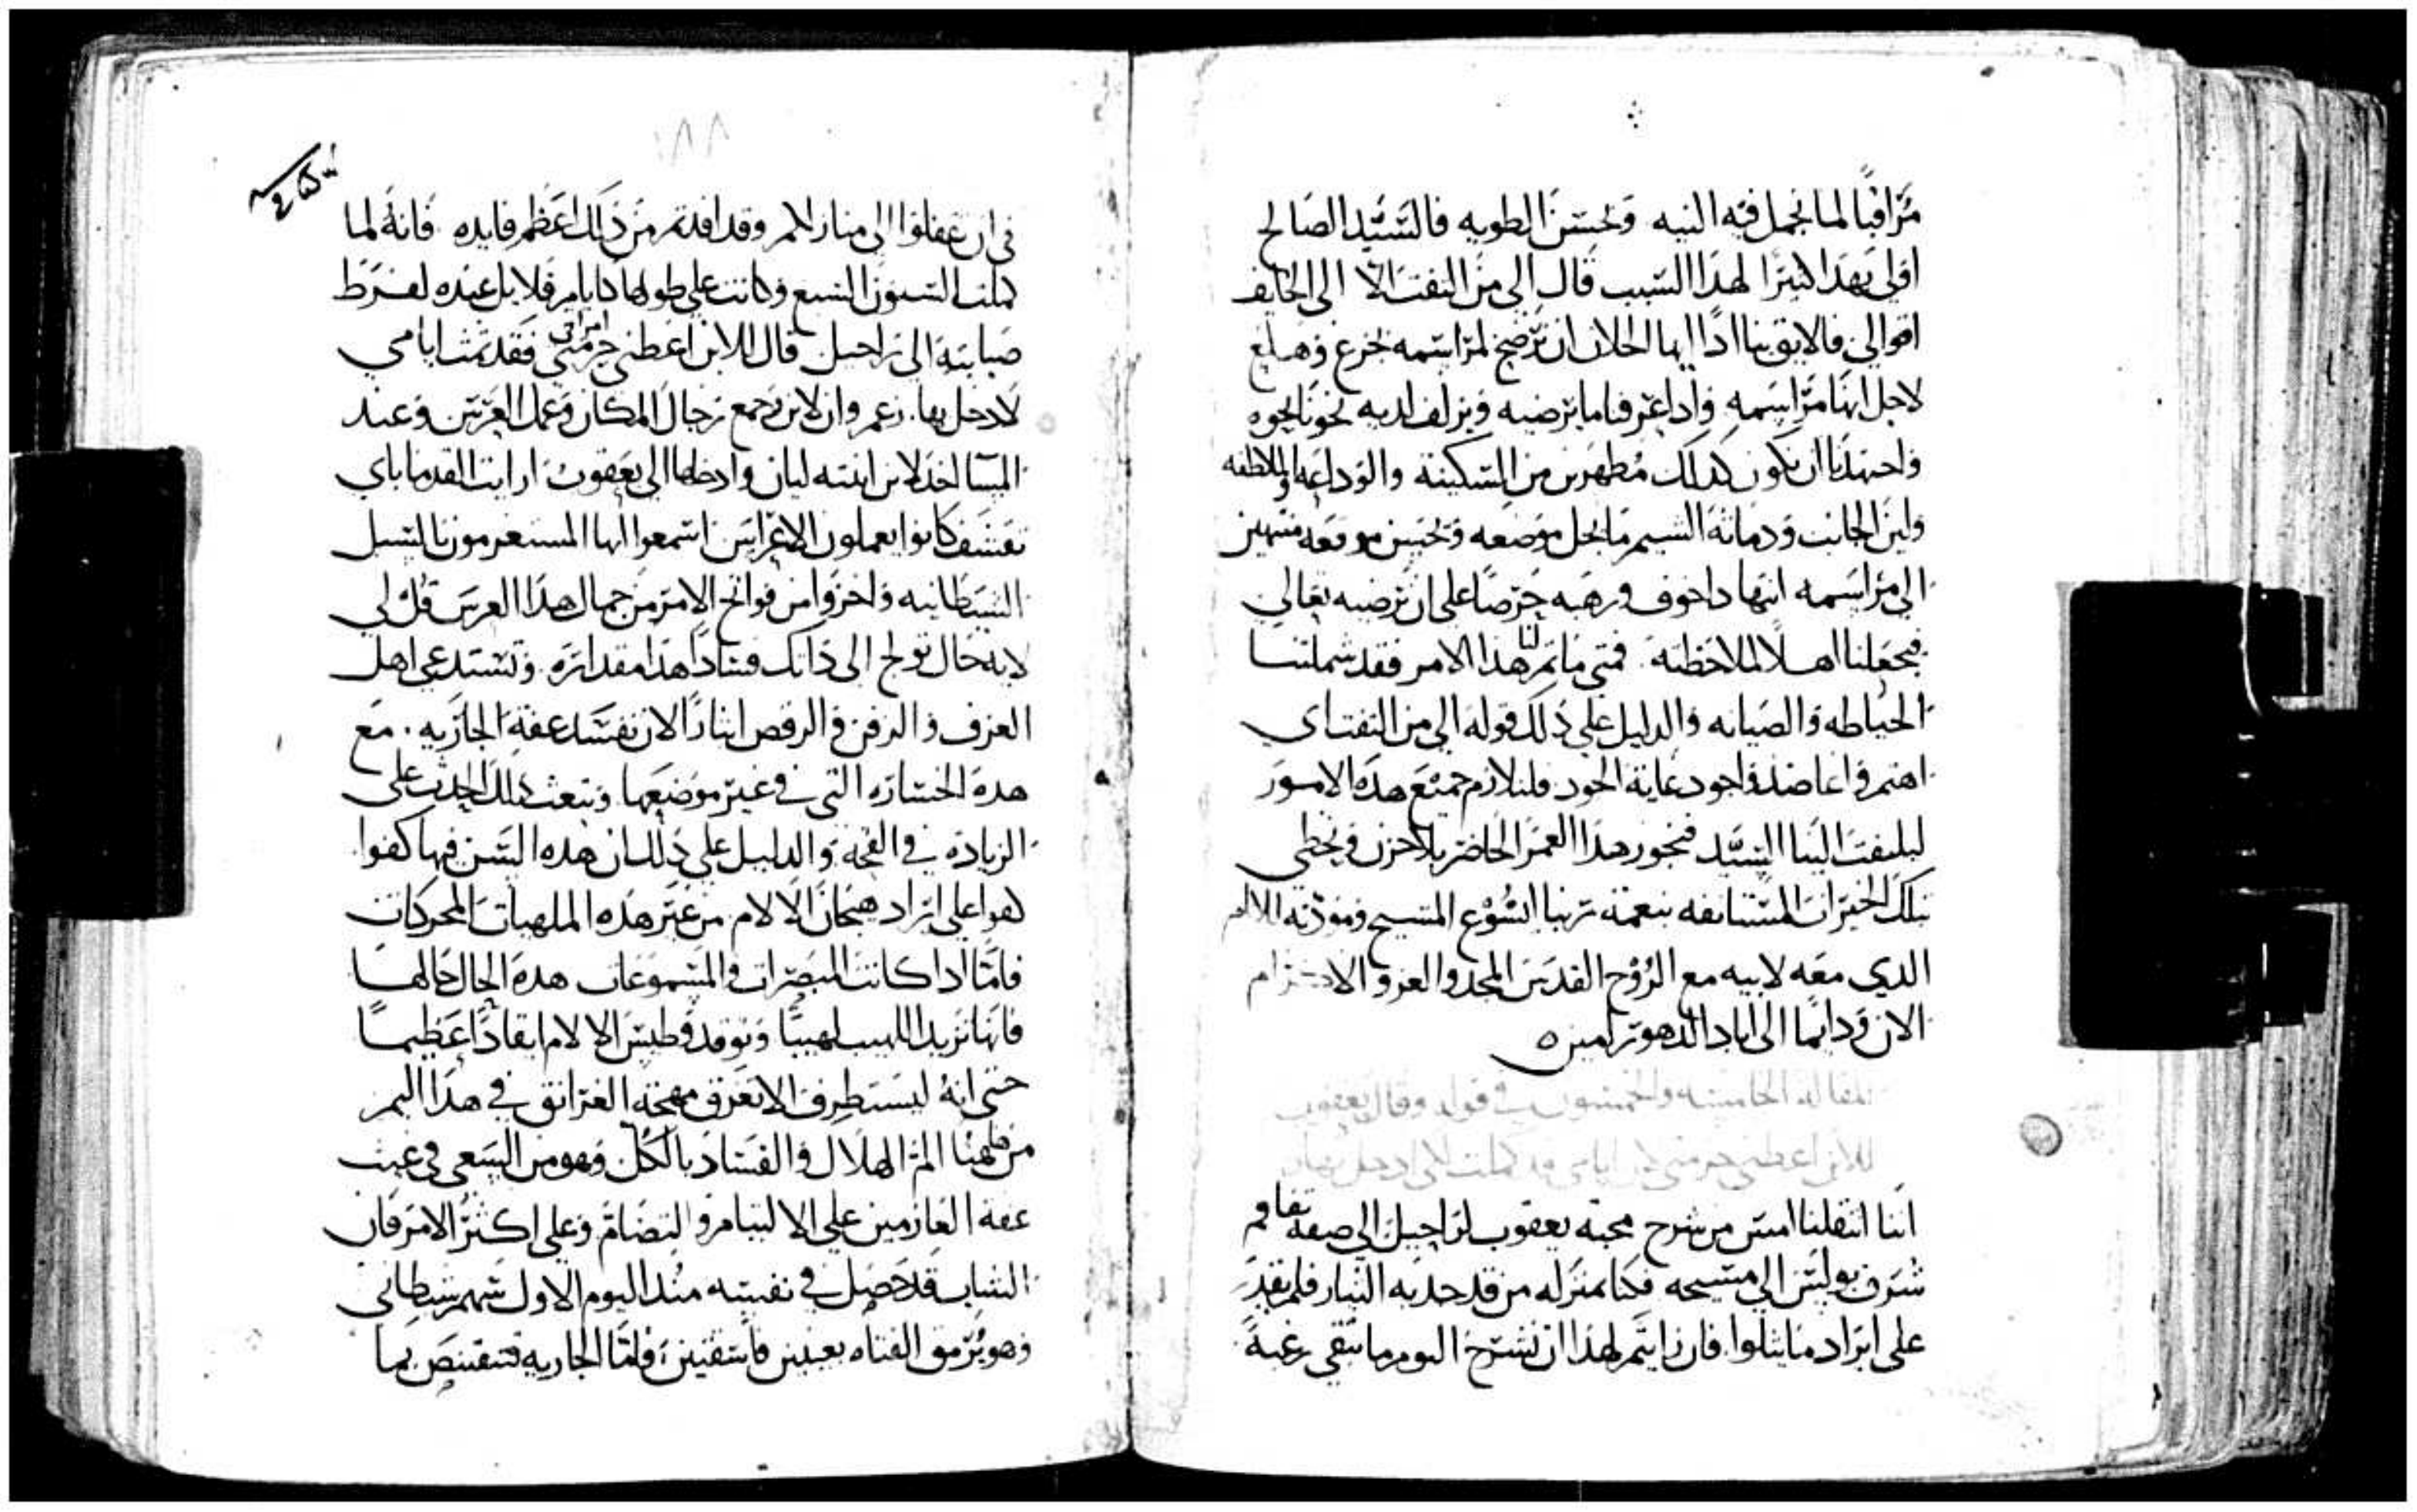 مراقبًا لما نجمل فيه النيه وحسن الطويه فالسيد الصالح
اقلى بهذا كثيرًا لهذا السبب قال الى من التفت الا الى الخايف
اقوالى فالايق بنا اذًا ايها الخلان ان نرضخ لمراسمه بجزع وهلع
لاجل انها مراسمه واذا عرفنا ما يرضيه ويزلف لديه نحونا نحوه
واجتهدنا ان نكون كذلك مظهرين من السكينة والوداعه والملاطفه
ولين الجانب ودماثة الشيم ما يحل موضعه ويحسن موقعه منتهين
الى مراسمه انتها ذا خوف ورهبه حرصًا على ان نرضيه تعالى
فيجعلنا اهلا لملاحظته فمتى ما تم لنا هذا الامر فقد شملتنا
الحياطه والصيانه والدليل على ذلك قوله الى من التفت اى
اهتم واعاضد واجود غاية الجود فلنلازم جميع هذه الامور
ليلتفت الينا السيد فنجوز هذا العمر الحاضر بلا حزن ونحظى
بتلك الخيرات المستانفه بنعمة ربنا ايسوع المسيح ومودته للانام
الدى معه لابيه مع الروح القدس المجد والعز والاكرام
الان ودايما الى اباد الدهور امين ه
المقاله الخامسه والخمسون فى قوله وقال يعقوب
للابن اعطنى حرمتى لان ايامى قد كملت لكى ادخل بها
اننا انتقلنا امس من شرح محبة يعقوب لراحيل الى صفة تفاقم
شرف بولس الى مسيحه فكنا بمنزله من قد جذبه التيار فلم يقدر
على ايراد ما يتلوا فان رايتم لهذا ان نشرح اليوم ما تبقى رغبة
١٨٨
فى ان تقفلوا الى منازلكم وقد افدتم من ذلك اعظم فايده فانه لما
كملت السنون السبع وكانت على طولها كايام قلايل عنده لفرط
صبابته الى راحيل قال للابن اعطنى حرمتى امراتى فقد تمت ايامى
لادخل بها زعم وان لابن جمع رجال المكان وعمل العرس وعند
المسا اخذ لابن ابنته ليان وادخلها الى يعقوب ارايت القدما باى
تقشف كانوا يعملون الاعراس اسمعوا ايها المستغرمون بالسبل
الشيطانيه واحزوا من فواتح الامر من جمال هذا العرس قل لى
لاية حال تولج الى ذاتك فسادًا هذا مقداره وتستدعى اهل
العزف والدفن والرقص ايثارًا لان تفسد عفة الجاريه مع
هذه الخساره التى فى غير موضعها وتبعث ذلك الحدث على
الزيادة فى القحة والدليل على ذلك ان هذه السن فيها كفوا
كفوا على ايراد هيجان الالام من غير هذه الملهيات المحركات
فاما اذا كانت المبصرات والمسموعات هذه الحال حالها
فانها تزيد اللهيب لهيبًا وتوقد وطيس الالام ايقادًا عظيمًا
حتى انه ليستطرف الا تغرق مهجة الغرانق فى هذا اليم
من هاهنا الم الهلال والفساد بالكل وهو من السعى فى عيب
عفة العازمين على الالتيام والتضام وعلى اكثر الامر فان
الشاب قد حصل فى نفسه منذ اليوم الاول سهم شيطانى
وهو يرمق الفتاه بعينين فاسقتين فاما الجاريه فتقتنص بما